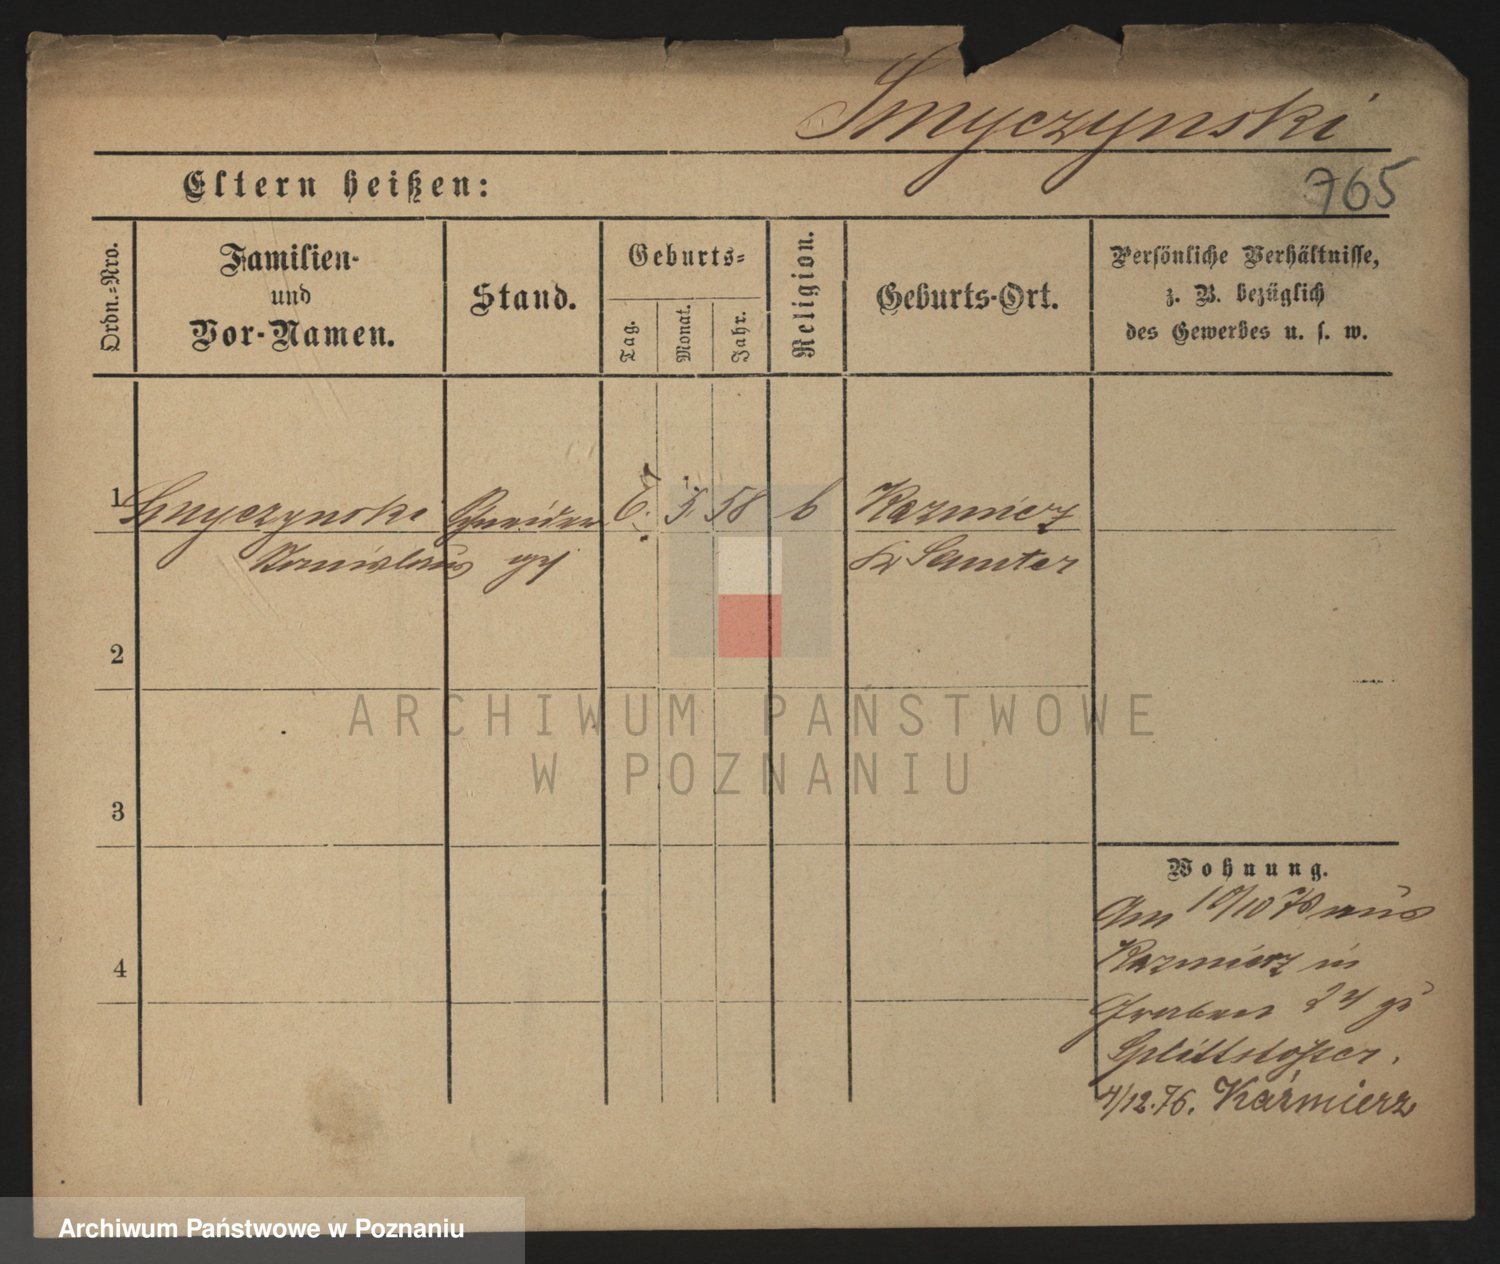 Smyczynski
Eltern heißen:
765
Ordn.-Nro.
Familien-
und
Vor-Namen.
Stand.
Geburts-
Tag.
Monat.
Jahr.
Religion.
Geburts-Ort.
Persönliche Verhältnisse,
z. B. bezüglich
des Gewerbes u. s. w.
1 Smyczynski Schneider 6. 5. 58 k Kazmierz
Stanislaus Kr Samter
2
3
4
Wohnung.
Am 10/10 76 aus
Kazmierz in
Graben 24 zu
Splittstößer.
4/12.76. Kaźmierz
ARCHIWUM PAŃSTWOWE
W POZNANIU
Archiwum Państwowe w Poznaniu